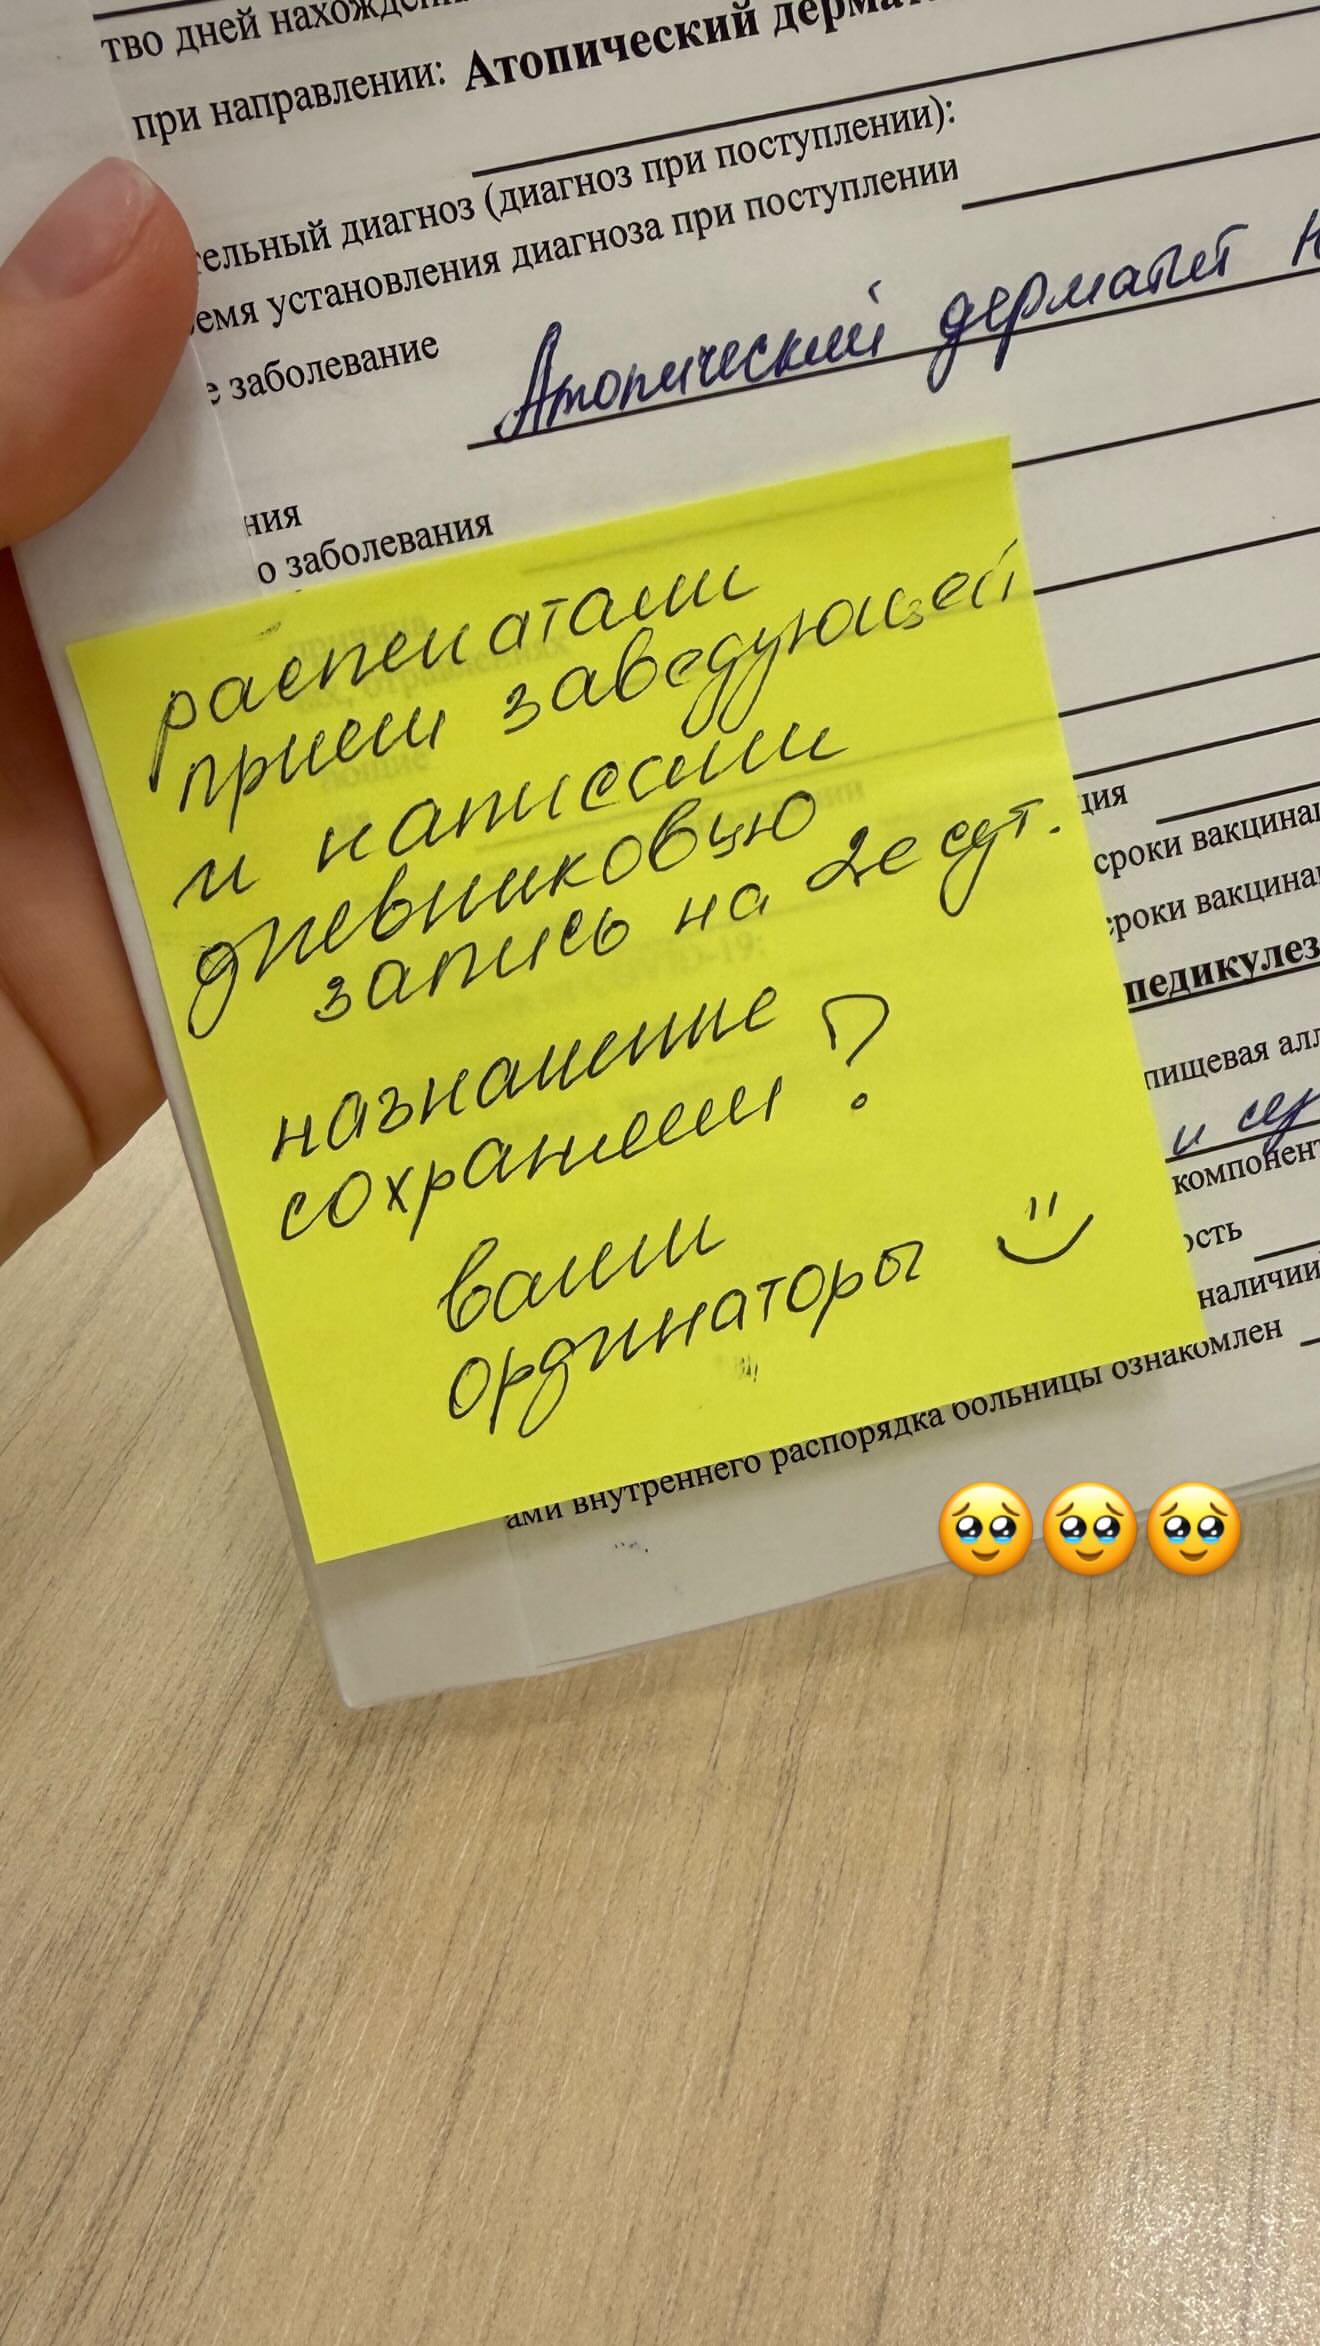 тво дней нахожден
при направлении: Атопический дермат
тельный диагноз (диагноз при поступлении):
емя установления диагноза при поступлении
е заболевание Атопический дерматит
ния
о заболевания
распечатали
прием заведующей
и написали
дневниковую
запись на 2е сут.
назначение
сохраняем?
ваши
ординаторы
ция
сроки вакцина
сроки вакцина
педикулез
пищевая алл
и
компонент
ость
наличии
ами внутреннего распорядка больницы ознакомлен